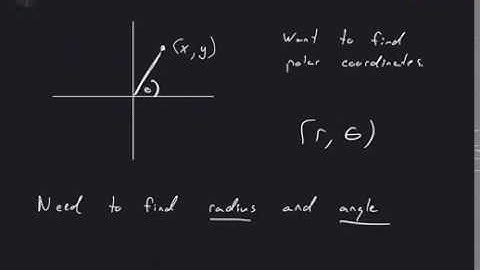 (x, y)
θ
Want to find
polar coordinates.
(r, θ)
Need to find radius and angle